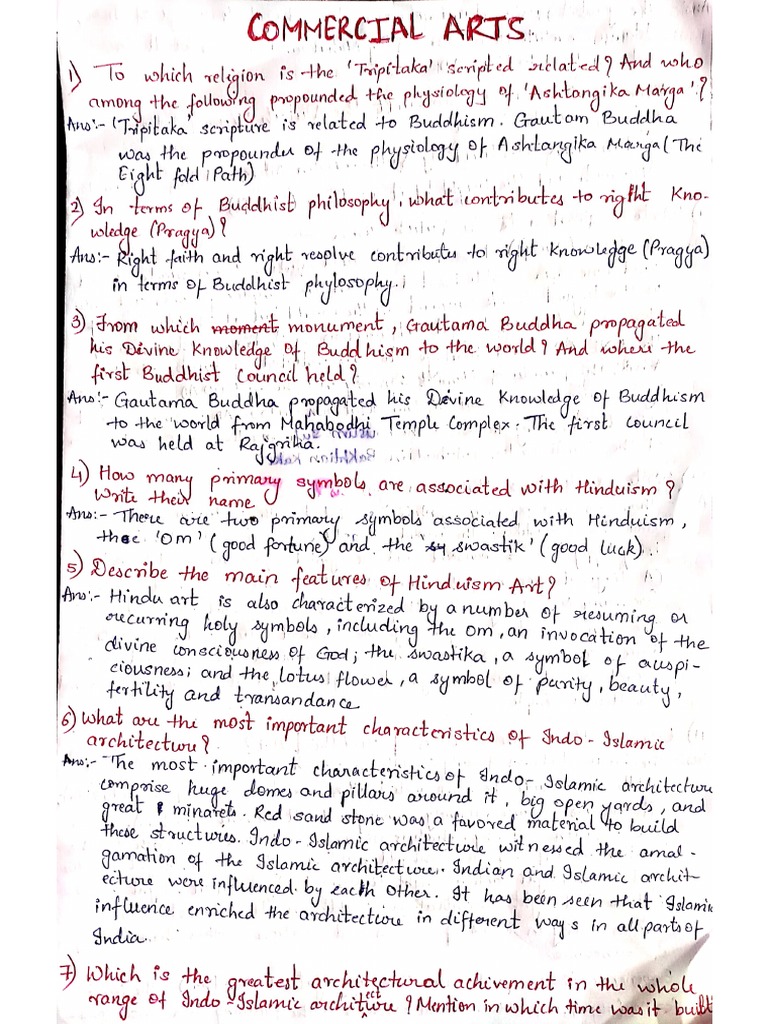 COMMERCIAL ARTS
1) To which religion is the 'Tripitaka' scripted related? And who
among the following propounded the physiology of 'Ashtongika Marga'?
Ans:- 'Tripitaka' scripture is related to Buddhism. Gautam Buddha
was the propounder of the physiology of Ashtangika Marga (The
Eight fold Path)
2) In terms of Buddhist philosophy, what contributes to right Kno-
wledge (Pragya)?
Ans:- Right faith and right resolve contributes to right knowledge (Pragya)
in terms of Buddhist phylosophy.
3) From which moment monument, Gautama Buddha propagated
his Divine Knowledge of Buddhism to the world? And where the
first Buddhist Council held?
Ans:- Gautama Buddha propagated his Devine Knowledge of Buddhism
to the world from Mahabodhi Temple Complex. The first council
was held at Rajgriha.
4) How many primary symbols are associated with Hinduism?
Write their name
Ans:- There are two primary symbols associated with Hinduism,
the 'Om' (good fortune) and the 'sy swastik' (good luck).
5) Describe the main features of Hinduism Art?
Ans:- Hindu art is also characterized by a number of resuming or
recurring holy symbols, including the om, an invocation of the
divine consciousness of God; the swastika, a symbol of auspi-
ciousness; and the lotus flower, a symbol of purity, beauty,
fertility and transandance
6) What are the most important characteristics of Indo-Islamic
architecture?
Ans:- The most important characteristics of Indo-Islamic architecture
comprise huge domes and pillars around it, big open yards, and
great minarets. Red sand stone was a favored material to build
these structures. Indo-Islamic architecture witnessed the amal-
gamation of the Islamic architecture. Indian and Islamic archit-
ecture were influenced by each other. It has been seen that Islamic
influence enriched the architecture in different ways in all parts of
India.
7) Which is the greatest architectural achivement in the whole
range of Indo-Islamic architecture? Mention in which time was it built